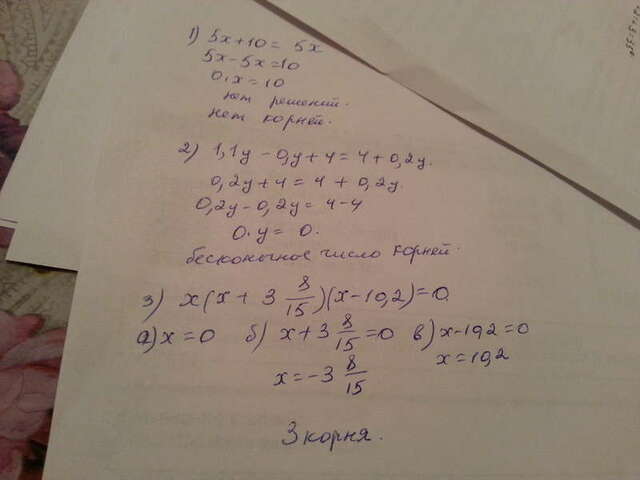 1) 5x+10= 5x
5x-5x=10
0·x=10
нет решений.
нет корней.
2) 1,1y - 0,y + 4 = 4 + 0,2y.
0,2y+4 = 4 + 0,2y.
0,2y-0,2y= 4-4
0·y= 0.
бесконечное число корней.
3) x(x + 3 8/15)(x-10,2)=0
а) x=0 б) x+3 8/15=0 в) x-10,2=0
x=-3 8/15 x=10,2
3 корня.